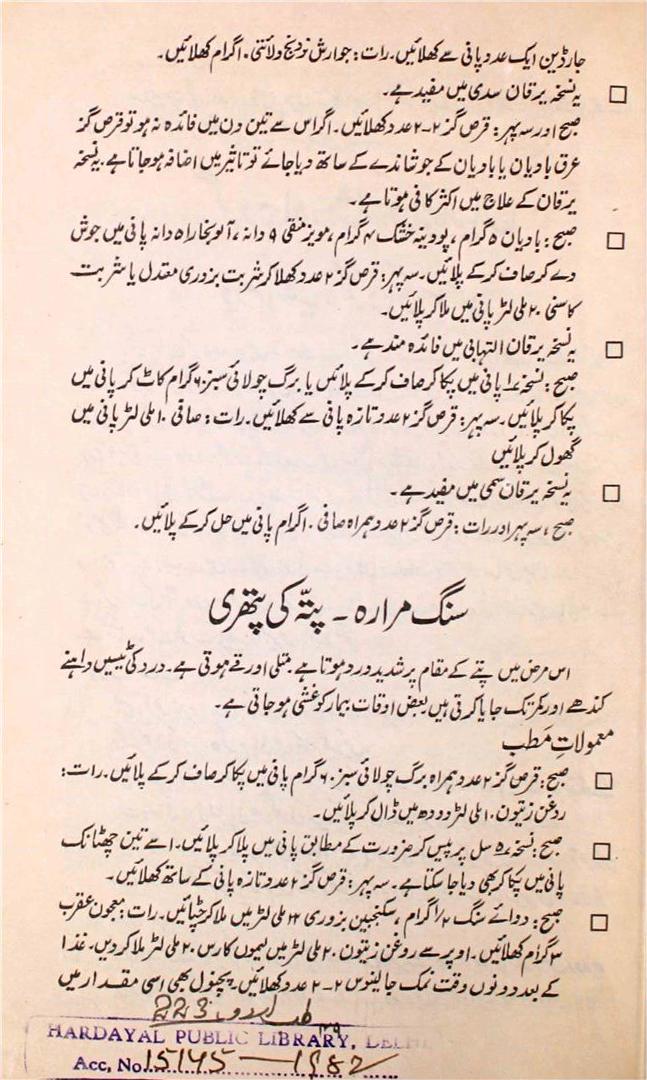 جارڈین ایک عدد پانی سے کھلائیں۔ رات: جوارش نودنج ولائتی ۱۰ گرام کھلائیں۔
☐ یہ نسخہ یرقان سدی میں مفید ہے۔
صبح اور سہ پہر: قرص گز ۲-۲ عدد کھلائیں۔ اگر اس سے تین دن میں فائدہ نہ ہو تو قرص گز
عرق بادیان یا بادیان کے جوشاندے کے ساتھ دیا جائے تو تاثیر میں اضافہ ہو جاتا ہے۔ یہ نسخہ
یرقان کے علاج میں اکثر کافی ہوتا ہے۔
☐ صبح: بادیان ۵ گرام، پودینہ خشک ۴ گرام، مویز منقی ۹ دانہ، آلو بخارا ۵ دانہ پانی میں جوش
دے کر صاف کر کے پلائیں۔ سہ پہر: قرص گز ۲ عدد کھلا کر شربت بزوری معتدل یا شربت
کاسنی ۲۰ ملی لٹر پانی میں ملا کر پلائیں۔
☐ یہ نسخہ یرقان التہابی میں فائدہ مند ہے۔
صبح: نسخہ پانی میں پکا کر صاف کر کے پلائیں یا برگ چولائی سبز ۶۰ گرام کاٹ کر پانی میں
پکا کر پلائیں۔ سہ پہر: قرص گز ۲ عدد تازہ پانی سے کھلائیں۔ رات: صافی ۱۰ ملی لٹر پانی میں
گھول کر پلائیں
☐ یہ نسخہ یرقان سمی میں مفید ہے۔
صبح، سہ پہر اور رات: قرص گز ۲ عدد ہمراہ صافی ۱۰ گرام پانی میں حل کر کے پلائیں۔
سنگ مرارہ ۔ پتّہ کی پتھری
اس مرض میں پتے کے مقام پر شدید درد ہوتا ہے۔ متلی اور قے ہوتی ہے۔ درد کی ٹیسیں داہنے
کندھے اور کمر تک جایا کرتی ہیں بعض اوقات بیمار کو غشی ہو جاتی ہے۔
معمولاتِ مَطب
☐ صبح: قرص گز ۲ عدد ہمراہ برگ چولائی سبز ۶۰ گرام پانی میں پکا کر صاف کر کے پلائیں۔ رات:
روغن زیتون ۱۰ ملی لٹر دودھ میں ڈال کر پلائیں۔
☐ صبح: نسخہ سل پر پیس کر ضرورت کے مطابق پانی میں ملا کر پلائیں۔ اسے تین چھٹانک
پانی میں پکا کر بھی دیا جا سکتا ہے۔ سہ پہر: قرص گز ۲ عدد تازہ پانی کے ساتھ کھلائیں۔
☐ صبح: دوائے سنگ ۱/۲ گرام، سکنجبین بزوری ۲۴ ملی لٹر میں ملا کر چٹائیں۔ رات: معجون عقرب
۳ گرام کھلائیں۔ اوپر سے روغن زیتون ۲۰ ملی لٹر میں لیموں کا رس ۲۰ ملی لٹر ملا کر دیں۔ غذا
کے بعد دونوں وقت نمک جالینوس ۲-۲ عدد کھلائیں۔ پچنول بھی اسی مقدار میں
223
HARDAYAL PUBLIC LIBRARY, DELHI
Acc, No. 15145 — 1982